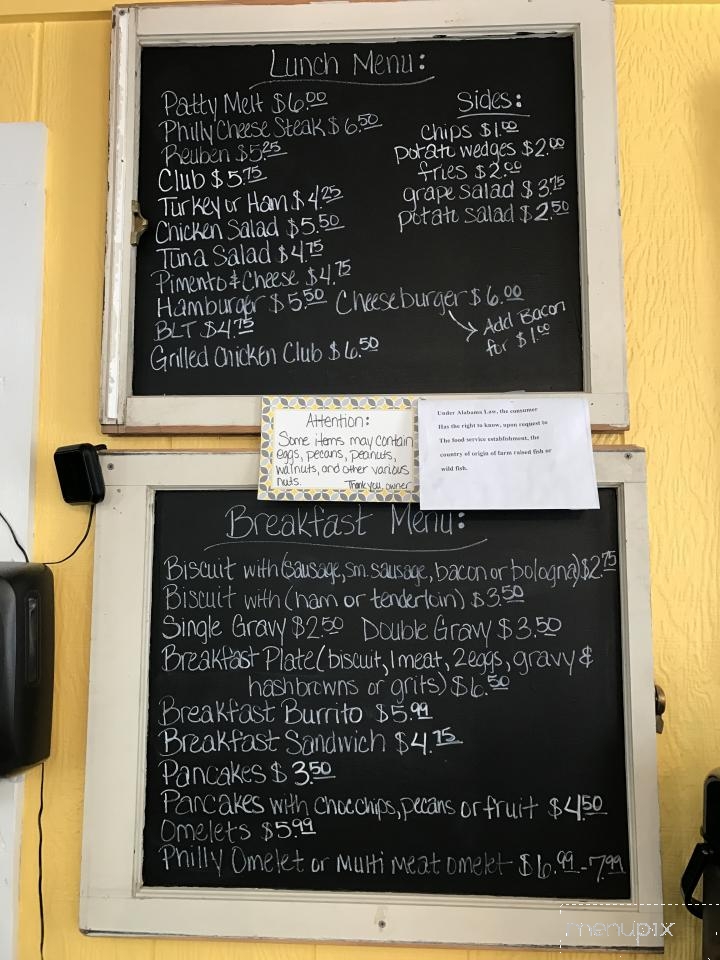 Lunch Menu:
Patty Melt $6.00
Philly Cheese Steak $6.50
Reuben $5.25
Club $5.75
Turkey or Ham $4.25
Chicken Salad $5.50
Tuna Salad $4.75
Pimento & Cheese $4.75
Hamburger $5.50 Cheeseburger $6.00
BLT $4.75
Grilled Chicken Club $6.50
Add Bacon
for $1.00
Sides:
chips $1.00
potato wedges $2.00
fries $2.00
grape salad $3.75
potato salad $2.50
Attention:
Some items may contain
eggs, pecans, peanuts,
walnuts, and other various
nuts. Thank you, owner
Under Alabama Law, the consumer
Has the right to know, upon request to
The food service establishment, the
country of origin of farm raised fish or
wild fish.
Breakfast Menu:
Biscuit with (sausage, sm. sausage, bacon or bologna) $2.75
Biscuit with (ham or tenderloin) $3.50
Single Gravy $2.50 Double Gravy $3.50
Breakfast Plate (biscuit, 1 meat, 2 eggs, gravy &
hashbrowns or grits) $6.50
Breakfast Burrito $5.99
Breakfast Sandwich $4.75
Pancakes $3.50
Pancakes with choc chips, pecans or fruit $4.50
Omelets $5.99
Philly Omelet or Multi Meat omelet $6.99-7.99
menupix